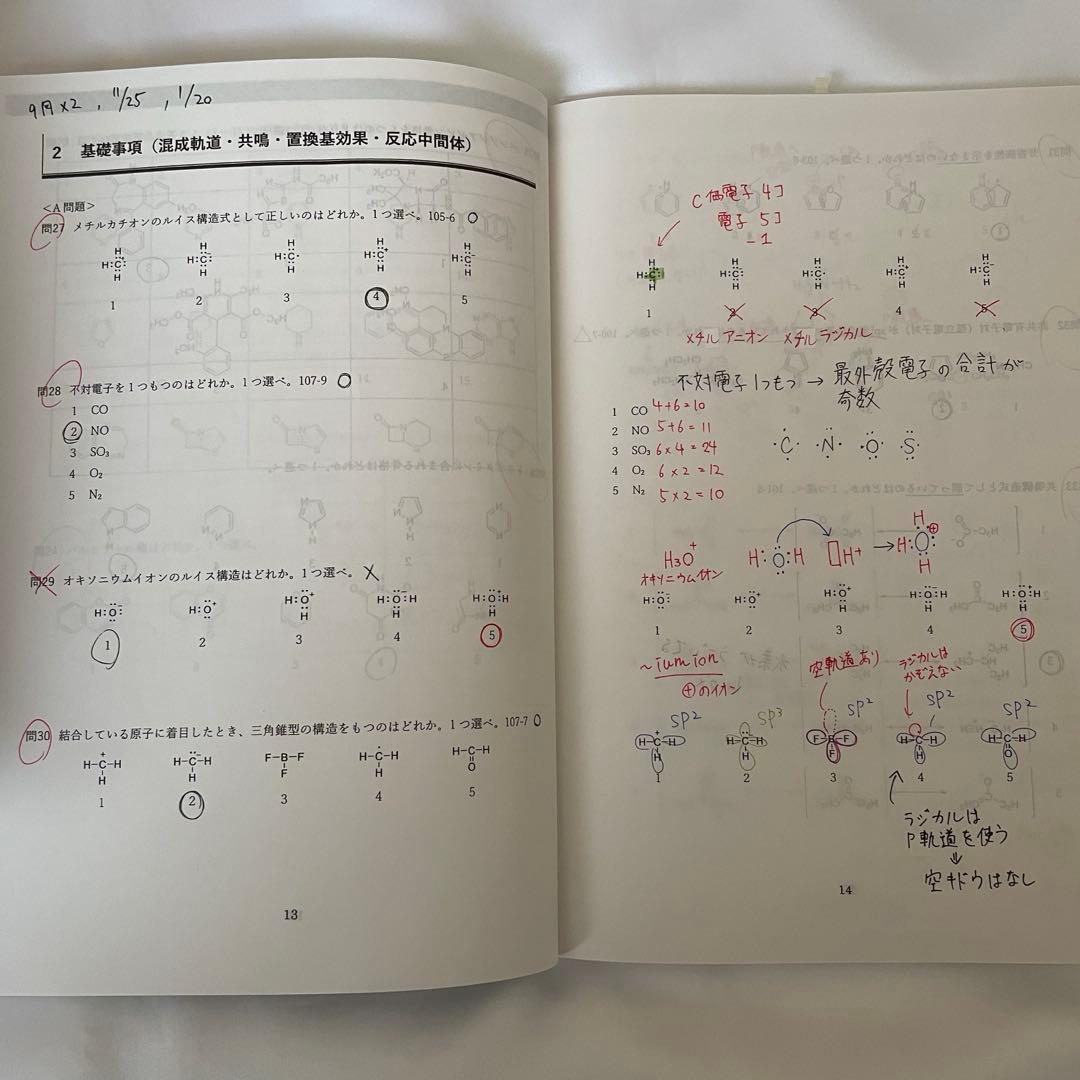 9月×2 , 11/25 , 1/20
2 基礎事項（混成軌道・共鳴・置換基効果・反応中間体）
<A 問題>
問27 メチルカチオンのルイス構造式として正しいのはどれか。1つ選べ。105-6 ○
1 2 3 4 5
問28 不対電子を1つもつのはどれか。1つ選べ。107-9 ○
1 CO
2 NO
3 SO₃
4 O₂
5 N₂
問29 オキソニウムイオンのルイス構造はどれか。1つ選べ。 ×
1 2 3 4 5
問30 結合している原子に着目したとき、三角錐型の構造をもつのはどれか。1つ選べ。107-7 ○
1 2 3 4 5
13
C 価電子 4コ
電子 5コ
-1
1 2 3 4 5
メチルアニオン メチルラジカル
不対電子1つもつ → 最外殻電子の合計が
奇数
1 CO 4+6=10
2 NO 5+6=11
3 SO₃ 6×4=24
4 O₂ 6×2=12
5 N₂ 5×2=10
·C· ·N· ·O· ·S·
H₃O⁺
オキソニウムイオン
H:O:H H+ → H:O:H ⊕
H
1 2 3 4 5
~ium ion
⊕のイオン
空軌道あり
ラジカルは
かぞえない
SP² SP³ SP² SP² SP²
1 2 3 4 5
ラジカルは
P軌道を使う
⇓
空キドウはなし
14